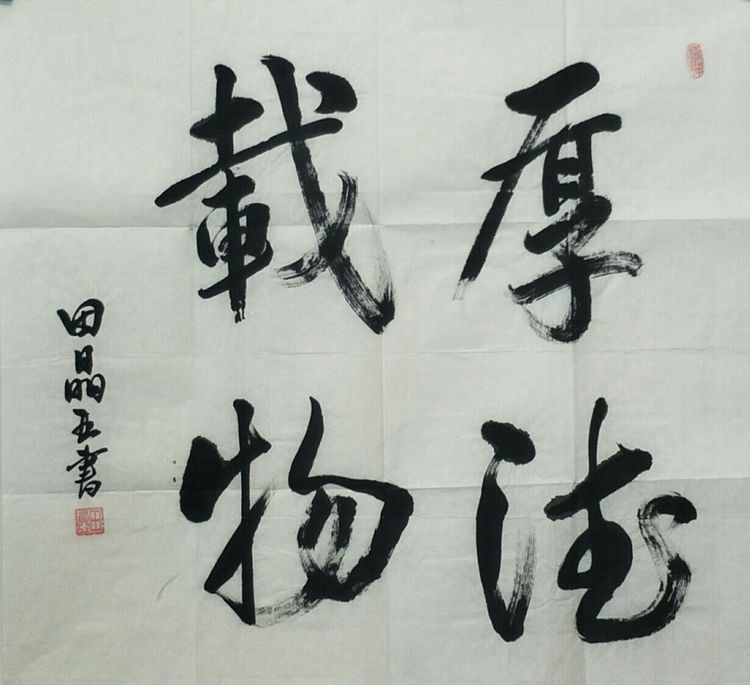 厚德
載物
田晶五書